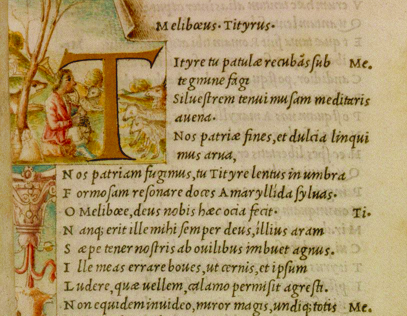 Melibœus. Tityrus.
Tityre tu patulæ recubãs sub Me.
tegmine fagi
Siluestrem tenui musam meditaris
auena.
Nos patriæ fines, et dulcia linqui
mus arua,
Nos patriam fugimus, tu Tityre lentus in umbra
Formosam resonare doces Amaryllida syluas.
O Melibœe, deus nobis hæc ocia fecit. Ti.
Nanq; erit ille mihi semper deus, illius aram
Sæpe tener nostris ab ouilibus imbuet agnus.
Ille meas errare boues, ut cernis, et ipsum
Ludere, quæ uellem, calamo permisit agresti.
Non equidem inuideo, miror magis, undiq; totis Me.